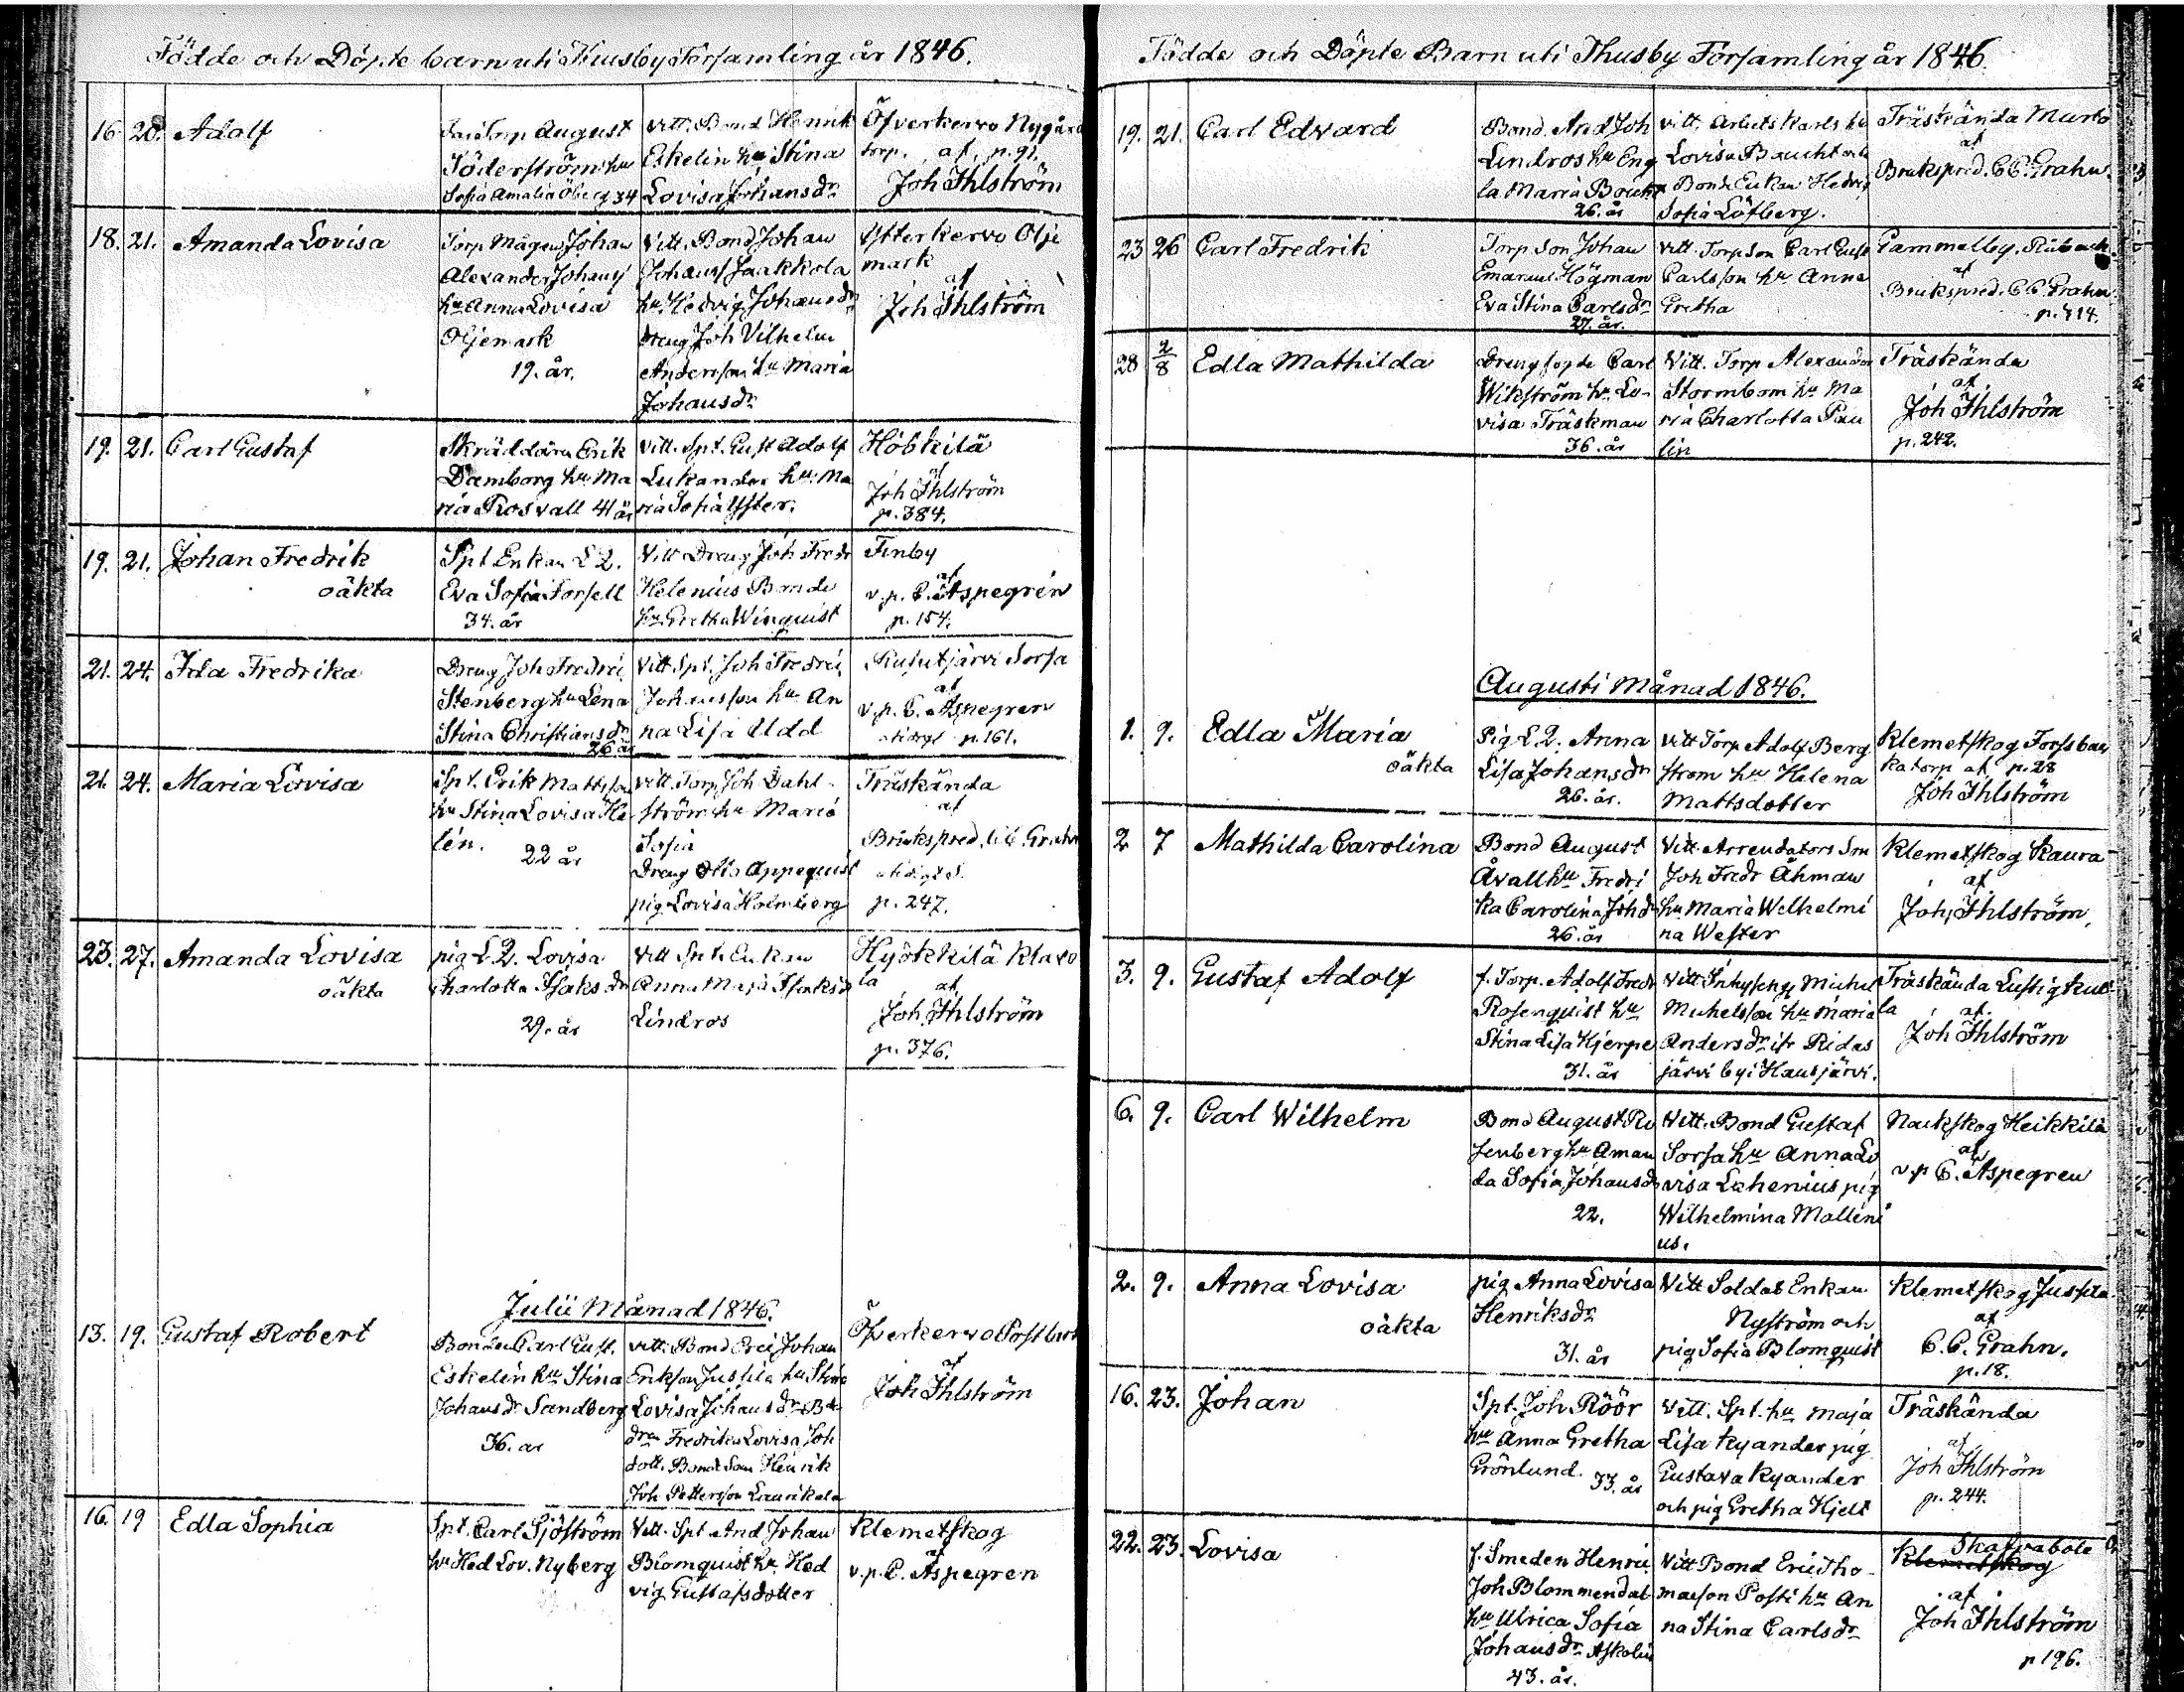 Födde och Döpte barn uti Thusby Församling år 1846.
16. 20. Adolf
August
Söderström hu
Sofia Amalia Öberg 34
Vitt. Bond Henrik
Eskelin hu Stina
Lovisa Johansdr
Öfverkervo Nygård
torp. af p. 91.
Joh Ihlström
18. 21. Amanda Lovisa
Torp Mågen Johan
Alexander Johanss
hu Anna Lovisa
Oljemark
19. år.
Vitt. Bond Johan
Johanss Jaakkola
hu Hedvig Johansdr
Dreng Joh Vilhelm
Andersson hu Maria
Johansdr
Ytterkervo Olje
mark
af
Joh Ihlström
19. 21. Carl Gustaf
Skräddaren Erik
Damborg hu Ma
ria Rosvall 41 år
Vitt. Spt. Gust Adolf
Lukander hu Ma
ria Sofia
af
Joh Ihlström
p. 384.
19. 21. Johan Fredrik
oäkta
Spt Enkan L 2.
Eva Sofia Forsell
34. år
Vitt Dreng Joh Fredr
Helenius Bonde
hu Gretha Winquist
Finby
af
v. p. C. Aspegrén
p. 154.
21. 24. Ida Fredrika
Dreng Joh Fredri
Stenberg hu Lena
Stina Christiansdr
26 år
Vitt Spt. Joh Fredri
Johansson hu An
na Lisa Udd
Rusutjärvi Sorsa
af
v. p. C. Aspegren
p. 161.
21. 24. Maria Lovisa
Spt. Erik Mattsson
hu Stina Lovisa He
lén.
22 år
Vitt. Torp Joh Dahl
ström hu Maria
Sofia
Dreng Otto Appequist
pig Lovisa Holmberg
Träskända
af
Brukspred. C C. Grahn
p. 247.
23. 27. Amanda Lovisa
oäkta
pig L 2. Lovisa
Charlotta Isaksdr
29. år
Vitt Spt. Enkan
Anna Maja Isaksdr
Lindros
Hyökkilä Klavo
la af
Joh Ihlström
p. 376.
Julii Månad 1846.
13. 19. Gustaf Robert
Bonden Carl Gust.
Eskelin hu Stina
Johansdr Sandberg
36. år
Vitt. Bond Eric Johan
Erikson Jussila hu Stina
Lovisa Johansdr
Fredrika Lovisa Joh
dott. Bonde Son Henrik
Joh Pettersson Laurikala
Öfverkervo
af
Joh Ihlström
16. 19 Edla Sophia
Spt. Carl Sjöström
hu Hed Lov. Nyberg
Vitt. Spt And Johan
Blomquist hu. Hed
vig Gustafsdotter
Klemetskog
af
v. p. C. Aspegren
Födde och Döpte Barn uti Thusby Församling år 1846.
19. 21. Carl Edvard
Bond. And Joh
Lindros hu Eng
la Maria Boucht
26. år
Vitt. Arbets Karls hu
Lovisa Boucht och
Bonde Enkan Hedvig
Sofia Löfberg.
Träskända
af
Brukspred. C C. Grahn.
23 26 Carl Fredrik
Torp Son Johan
Emanuel Högman
Eva Stina Carlsdr
27. år.
Vitt. Torp Son Carl Gust
Carlsson hu Anna
Gretha
Gammelby.
af
Brukspred. C C. Grahn
28 2/8 Edla Mathilda
Drengfogde Carl
Wikström hu. Lo-
visa Träskman
36. år
Vitt. Torp Alexander
Stormbom hu Ma
ria Charlotta Pau
lin
Träskända
af
Joh Ihlström
p. 242.
Augusti Månad 1846.
1. 9. Edla Maria
oäkta
Pig L 2. Anna
Lisa Johansdr
26. år.
Vitt Torp Adolf Berg
strom hu Helena
Mattsdotter
Klemetskog Forssbac
ka torp af p. 28
Joh Ihlström
2 7 Mathilda Carolina
Bond August
Åvall hu Fredri
ka Carolina Johdr
26. år
Vitt. Arrendators Son
Joh Fredr Åhman
hu Maria Wilhelmi
na Wester
Klemetskog Kaura
af
Joh Ihlström
3. 9. Gustaf Adolf
f. Torp. Adolf Fredr
Rosenquist hu
Stina Lisa Hjerpe
31. år
Vitt Inhysing Michel
Michelsson hu Maria
Andersdr ifr Ridas
järvi by i Hausjärvi.
Träskända Lustigkul
la af
Joh Ihlström
6. 9. Carl Wilhelm
Bond August Ro
senberg hu Aman
da Sofia Johansdr
22.
Vitt. Bond Gustaf
Sorsa hu Anna Lo
visa Lahenius pig
Wilhelmina Malleni
us.
Nackskog Heikkilä
af
v. p C. Aspegren
2. 9. Anna Lovisa
oäkta
pig Anna Lovisa
Henriksdr
31. år
Vitt Soldat Enkan
Nyström och
pig Sofia Blomquist
Klemetskog Jussila
af
C. C. Grahn.
p. 18.
16. 23. Johan
Spt. Joh Röör
hu Anna Gretha
Grönlund. 33. år
Vitt. Spt. hu Maja
Lisa Kyander pig
Gustava Kyander
och pig Gretha Hjelt
Träskända
af
Joh Ihlström
p. 244.
22. 23. Lovisa
f. Smeden Henric
Joh Blommendal
hu Ulrica Sofia
Johansdr Askolin
43. år.
Vitt Bond Eric Tho-
masson Posti hu An
na Stina Carlsdr
Skafvaböle
Klemetskog
af
Joh Ihlström
p 196.